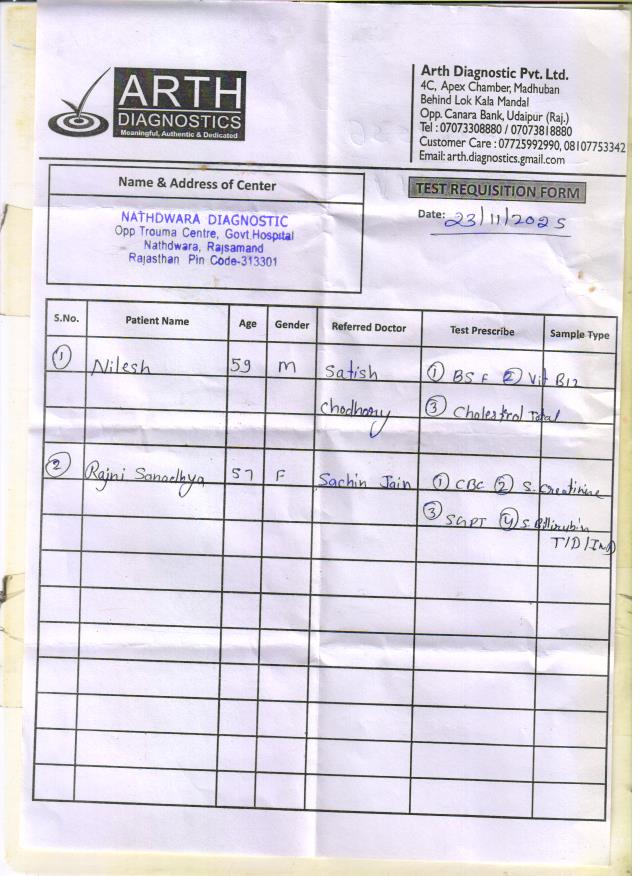 ARTH
DIAGNOSTICS
Meaningful, Authentic & Dedicated
Arth Diagnostic Pvt. Ltd.
4C, Apex Chamber, Madhuban
Behind Lok Kala Mandal
Opp. Canara Bank, Udaipur (Raj.)
Tel : 07073308880 / 07073818880
Customer Care : 07725992990, 08107753342
Email: arth.diagnostics.gmail.com
Name & Address of Center
NATHDWARA DIAGNOSTIC
Opp Trouma Centre, Govt Hospital
Nathdwara, Rajsamand
Rajasthan Pin Code-313301
TEST REQUISITION FORM
Date: 23/11/2025
S.No. Patient Name Age Gender Referred Doctor Test Prescribe Sample Type
1 Nilesh 59 M Satish 1 BSF 2 Vit B12
Chodhary 3 Cholestrol Total
2 Rajni Sanadhya 57 F Sachin Jain 1 CBC 2 S. Creatinine
3 SGPT 4 S. Bilirubin
T/D/Ind